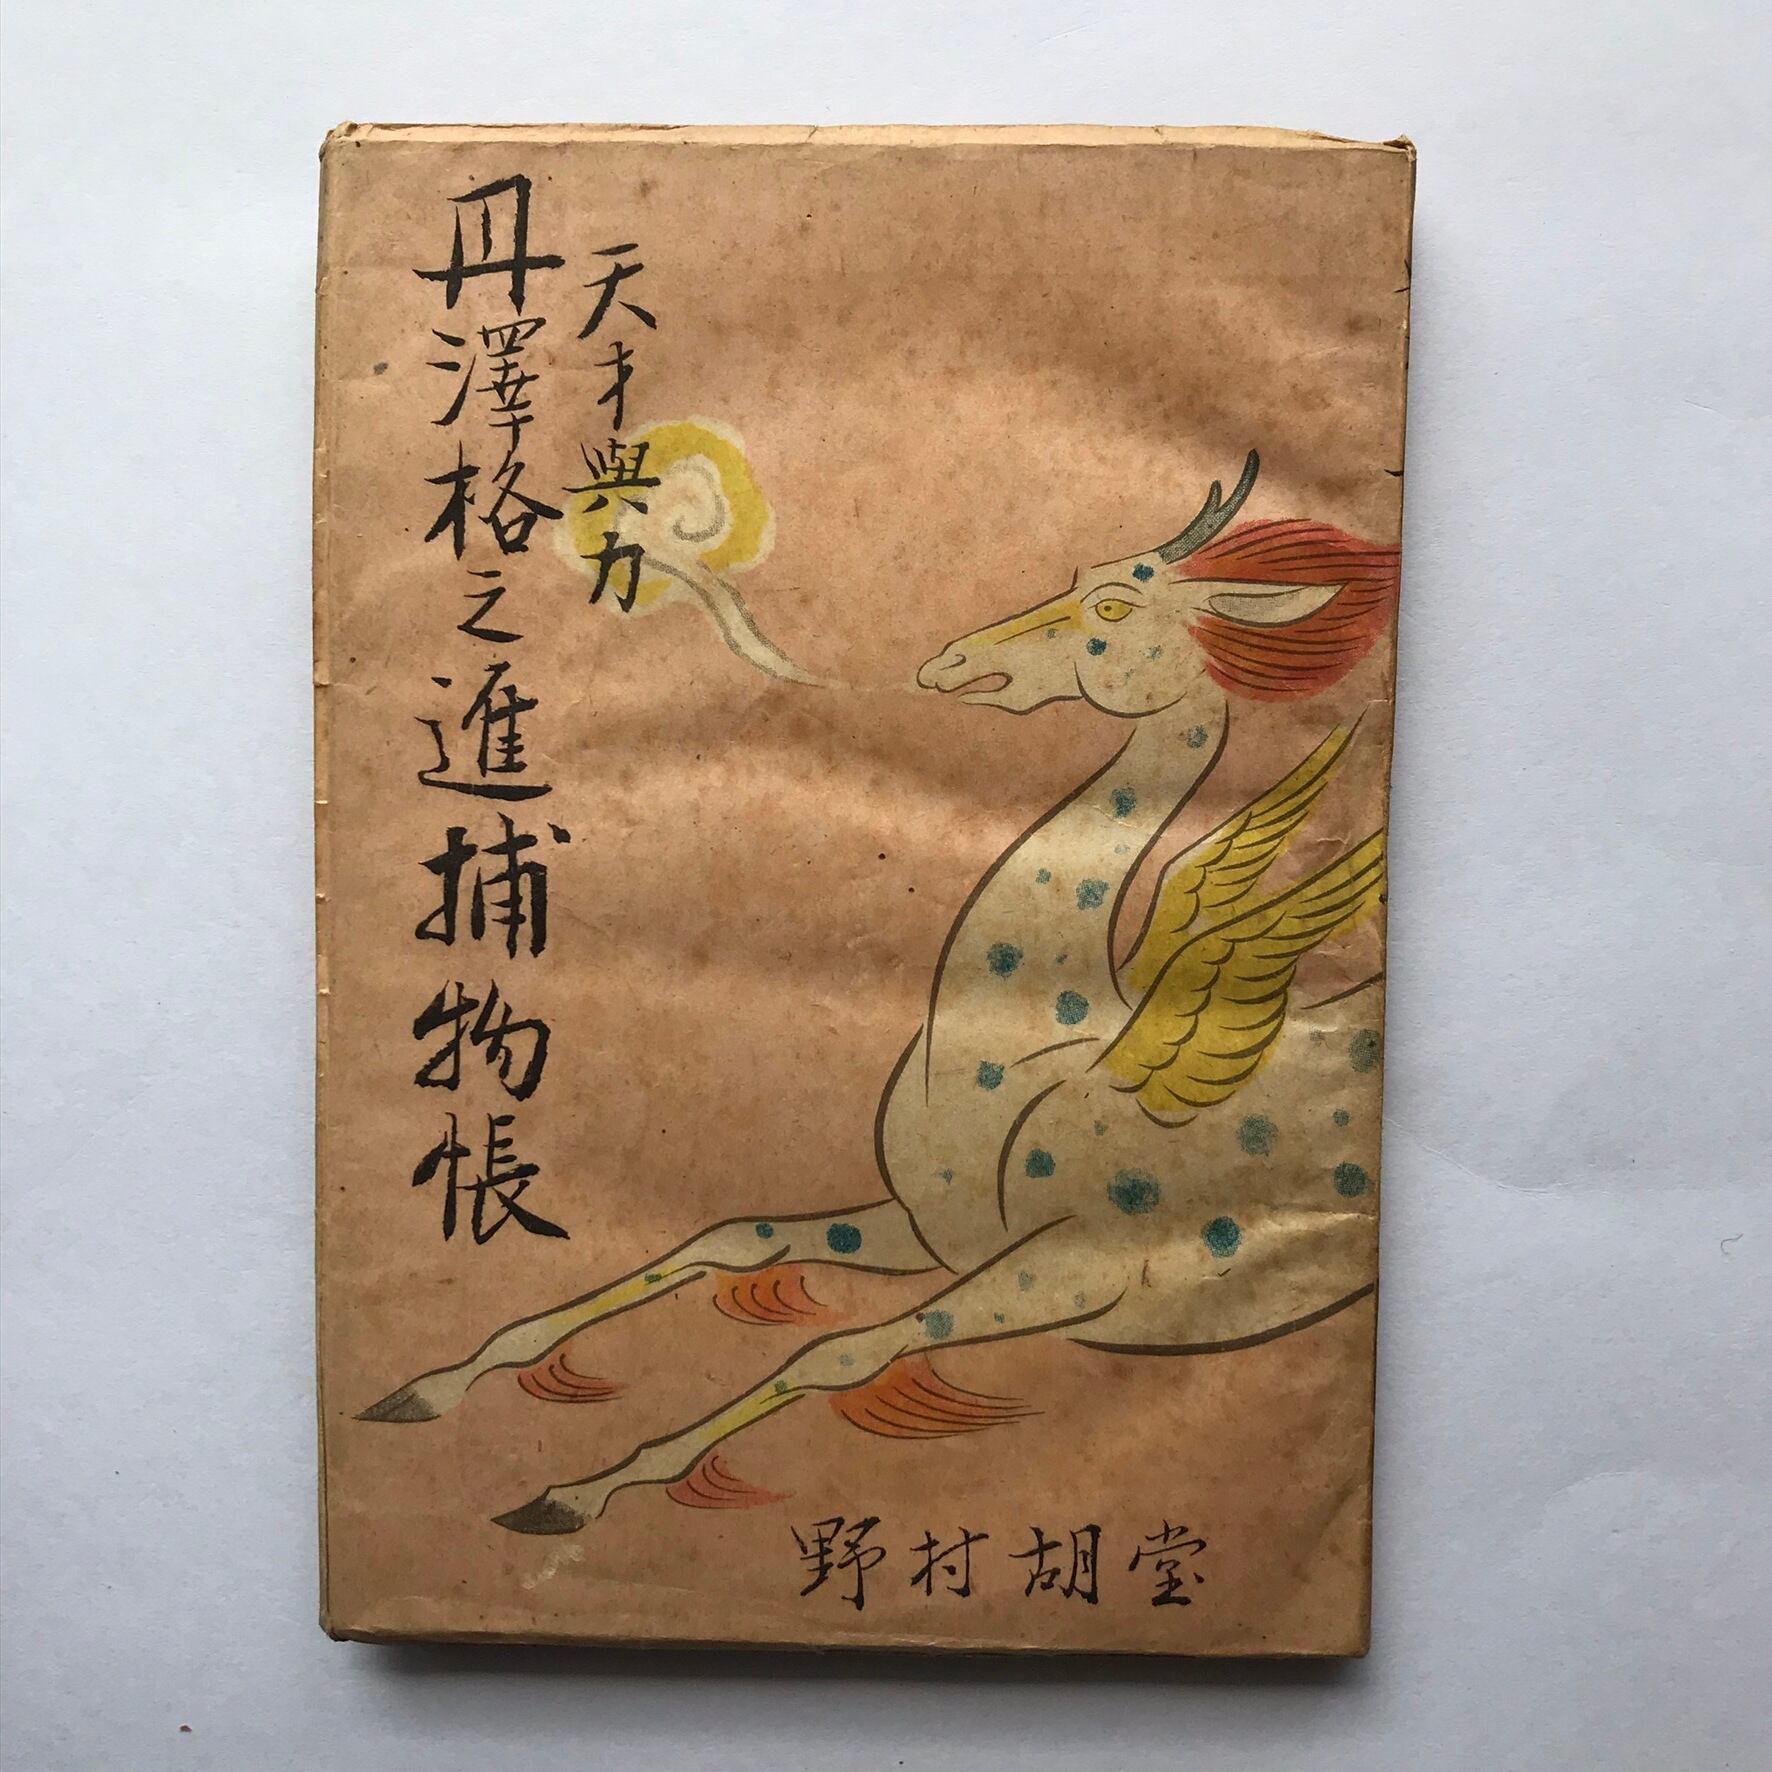 天才與力
丹澤格之進捕物帳
野村胡堂